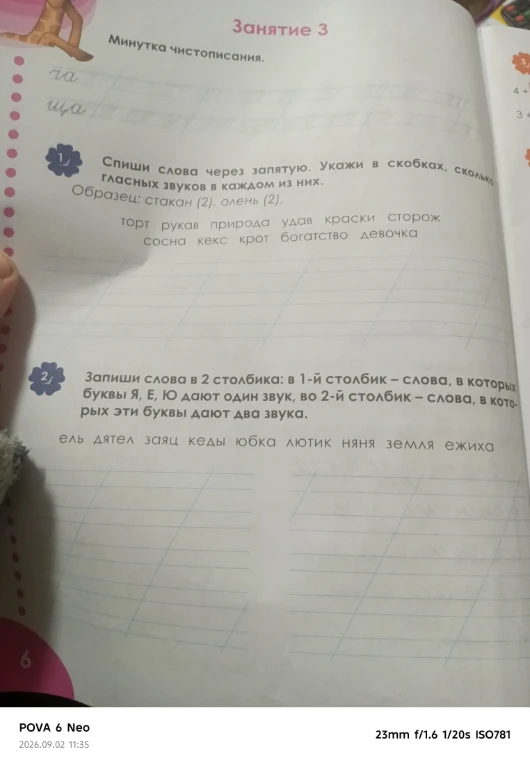 Занятие 3
Минутка чистописания.
ча
ща
1
Спиши слова через запятую. Укажи в скобках, сколько
гласных звуков в каждом из них.
Образец: стакан (2), олень (2).
торт рукав природа удав краски сторож
сосна кекс крот богатство девочка
2
Запиши слова в 2 столбика: в 1-й столбик – слова, в которых
буквы Я, Е, Ю дают один звук, во 2-й столбик – слова, в кото-
рых эти буквы дают два звука.
ель дятел заяц кеды юбка лютик няня земля ежиха
6
3
4 +
3 +
POVA 6 Neo
2026.09.02 11:35
23mm f/1.6 1/20s ISO781